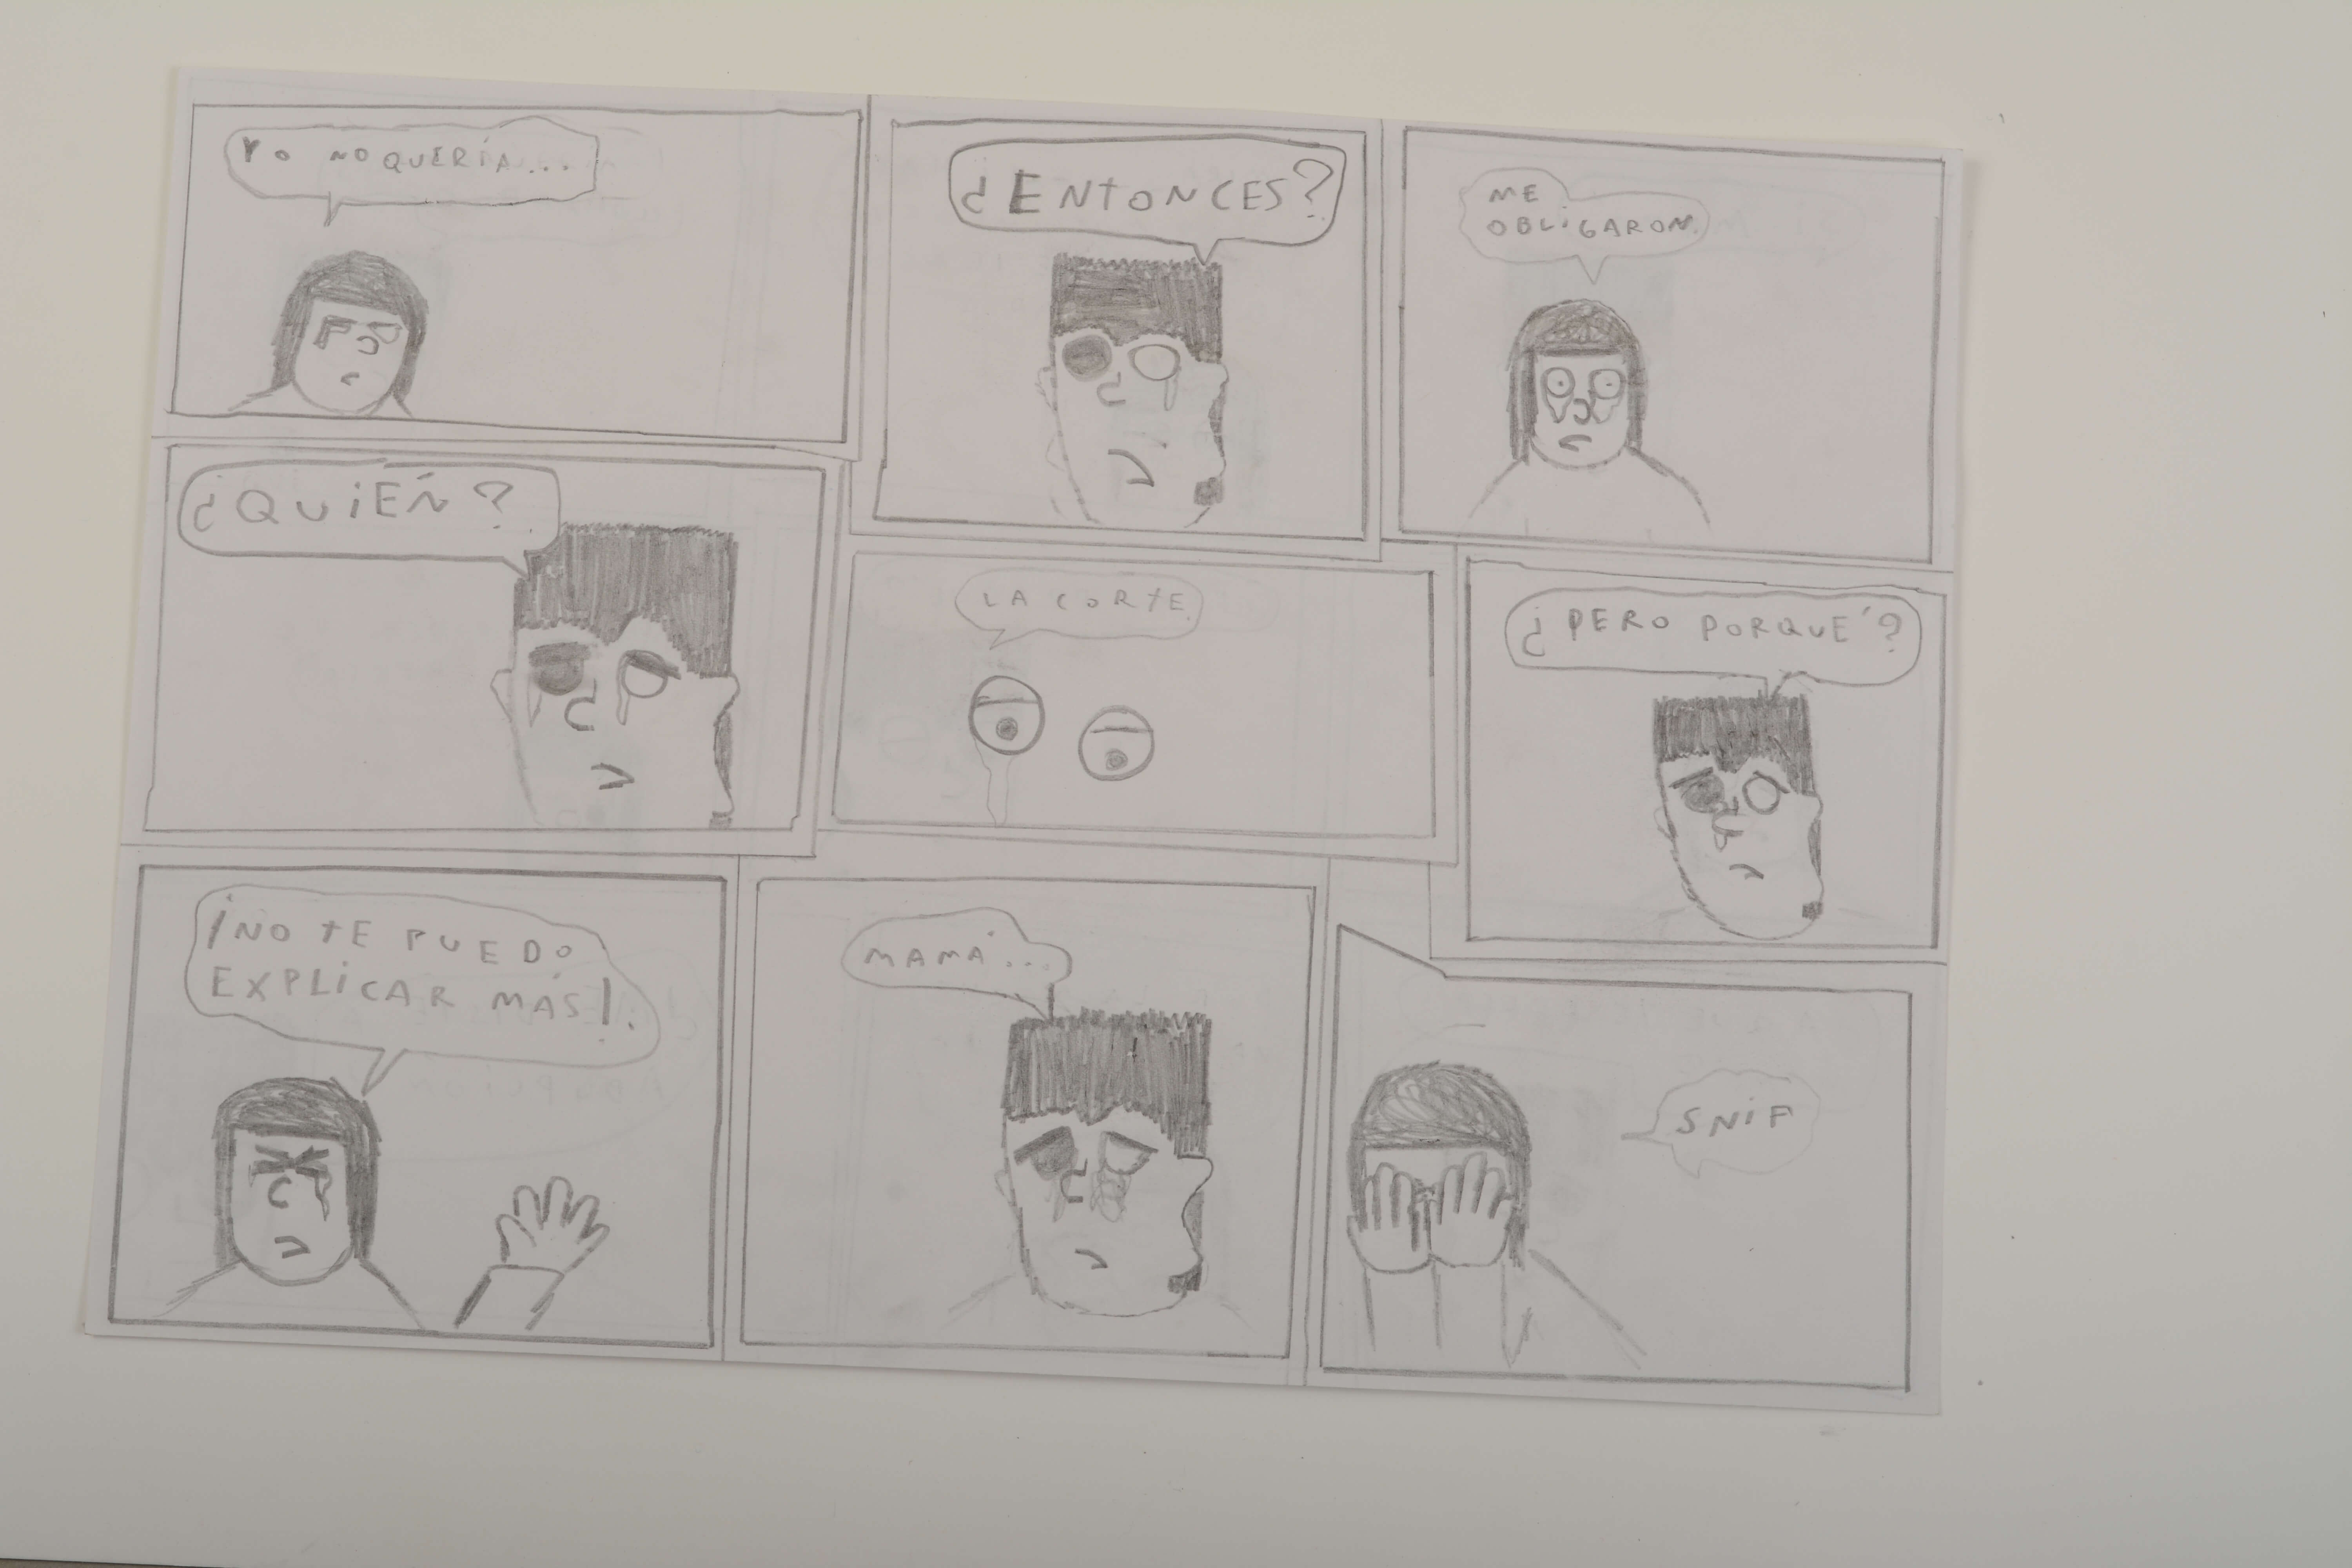 YO NO QUERÍA...
¿ENTONCES?
ME
OBLIGARON.
¿QUIÉN?
LA CORTE.
¿PERO PORQUÉ?
¡NO TE PUEDO
EXPLICAR MÁS!.
MAMÁ...
SNIF